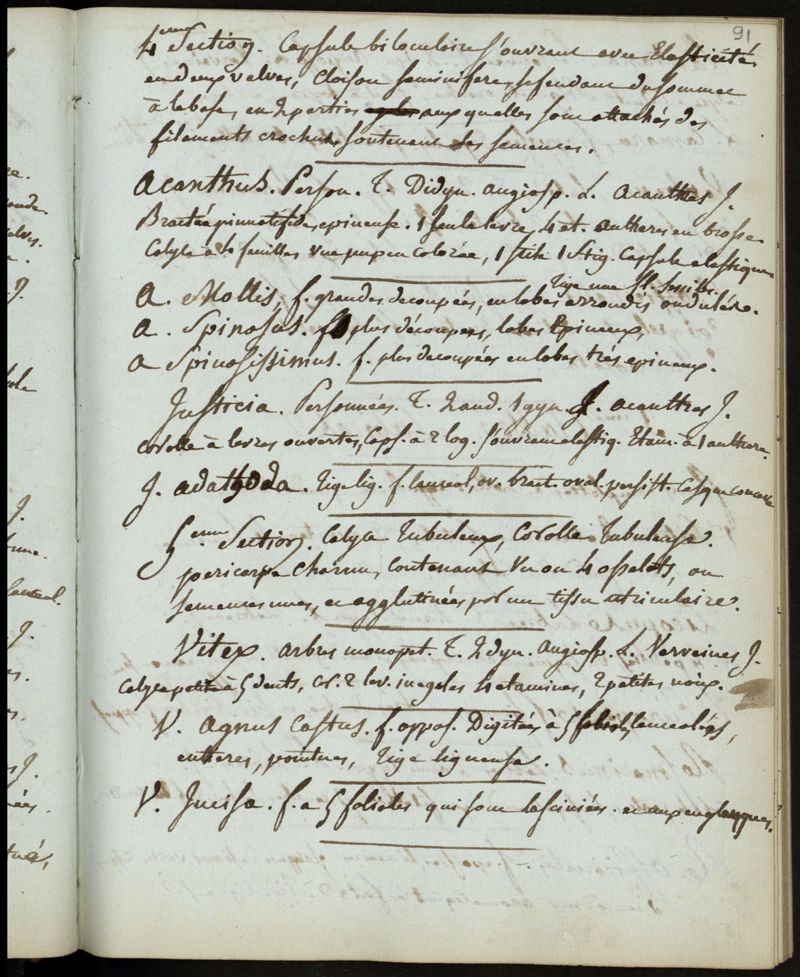 91
4eme Section. Capsule biloculaire s'ouvrant avec Elasticité
en deux valves, Cloison seminifere, se fendant du sommet
à la base, en 2 parties auxquelles sont attachés des
filaments crochus, soutenant les semences.
Acanthus. Person. T. Didyn. angiosp. L. Acanthes J.
Bractée pinnatifide, epineuse. 1 seule levre, 4 et. antheres en brosse
Calyce à 4 feuilles une jusp en Colorée, 1 stile 1 stig. Capsule elastique
Tige nue fl. sessiles.
A. Mollis. f. grandes decoupées, en lobes arrondis ondulés.
A. Spinosus. f. plus découpées, lobes Epineux,
A Spinosissimus. f. plus decoupées en lobes trés epineux.
Justicia. Personnées. T. 2 and. 1 gyn. L. acanthes J.
Corolle à levres ouvertes, Caps. à 2 log. s'ouvrant elastiq. Etam. à 1 anthere.
J. adathoda. Tige lig. f. lanceol, ov. bract. oval. persist. Casque concave
5eme Section. Calyce Tubuleux, Corolle Tubuleuse.
pericarpe Charnu, Contenant Un ou 4 osselets, ou
semences nues, et agglutinées par un tissu utriculaire.
Vitex. arbres monopet. T. 2dyn. angiosp. L. Verveines J.
Calyce petit à 5 dents, Cor. 2 lev. inegales 4 etamines, 2 petites noix.
V. agnus Castus. f. oppos. Digitées à 5 folioles lanceolées,
entieres, pointues, Tige ligneuse.
V. Incisa. f. a 5 folioles qui sont lasciniées.